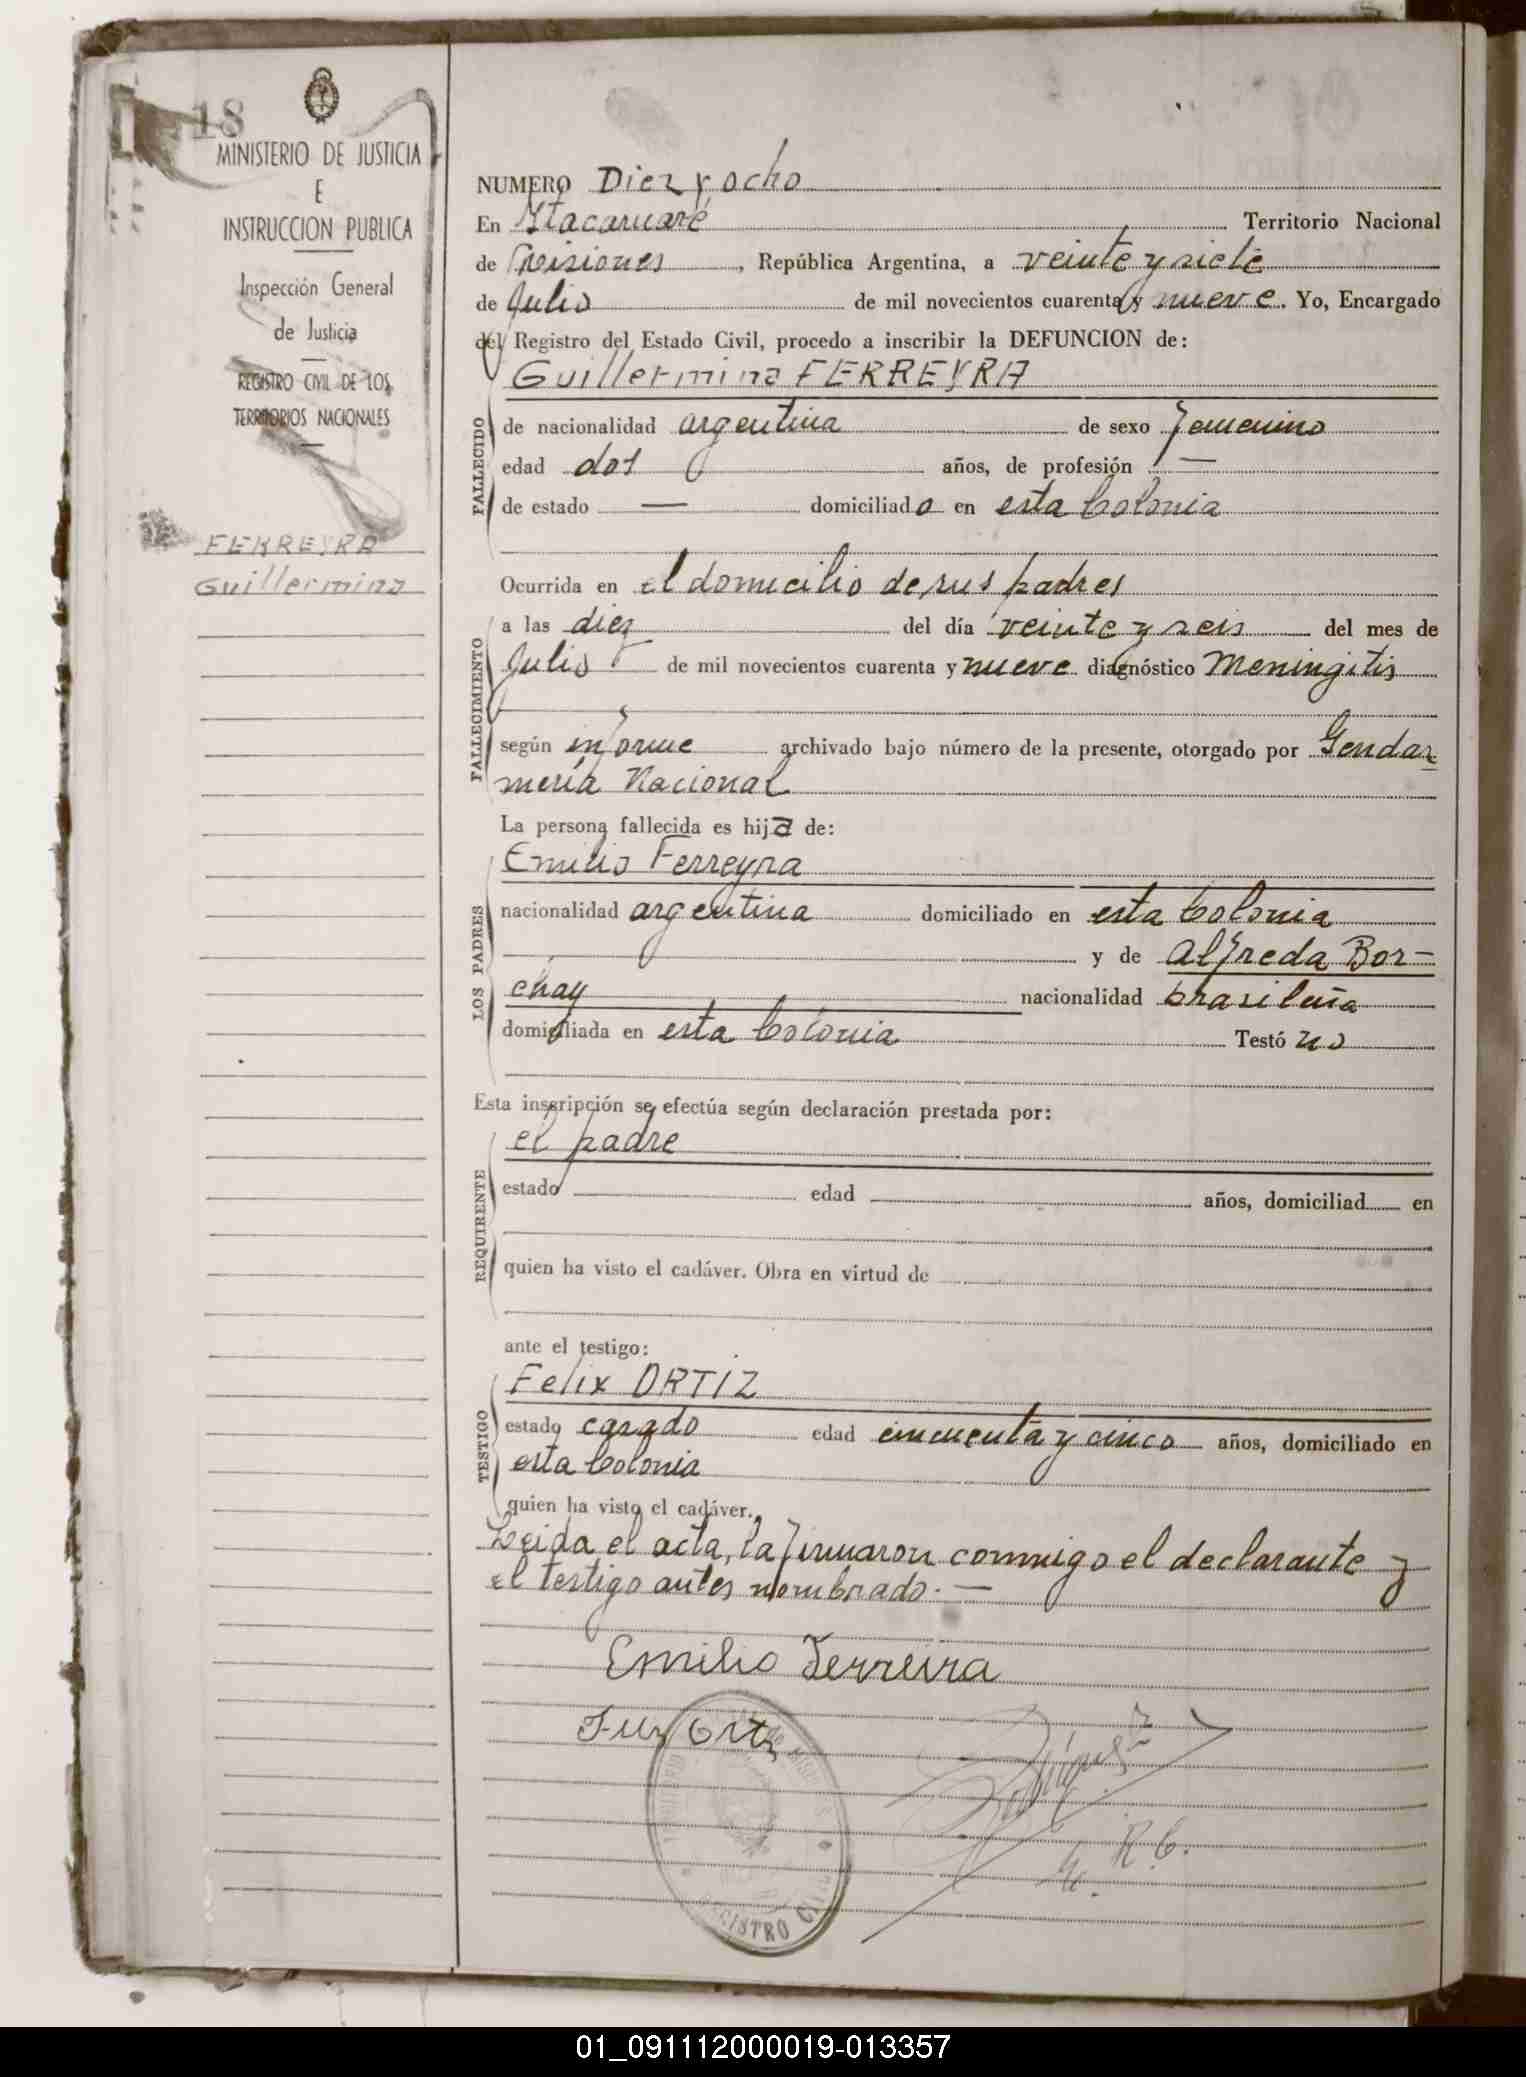 18
MINISTERIO DE JUSTICIA
E
INSTRUCCION PUBLICA
Inspección General
de Justicia
REGISTRO CIVIL DE LOS
TERRITORIOS NACIONALES
FERREYRA
Guillermina
NUMERO Diez y ocho
En Itacaruaré Territorio Nacional
de Misiones, República Argentina, a veinte y siete
de Julio de mil novecientos cuarenta y nueve. Yo, Encargado
del Registro del Estado Civil, procedo a inscribir la DEFUNCION de:
Guillermina FERREYRA
FALLECIDO
de nacionalidad argentina de sexo femenino
edad dos años, de profesión —
de estado — domiciliado en esta Colonia
FALLECIMIENTO
Ocurrida en el domicilio de sus padres
a las diez del día veinte y seis del mes de
Julio de mil novecientos cuarenta y nueve diagnóstico Meningitis
según informe archivado bajo número de la presente, otorgado por Gendar
mería Nacional
La persona fallecida es hija de:
LOS PADRES
Emilio Ferreyra
nacionalidad argentina domiciliado en esta Colonia
y de Alfreda Bor-
chay nacionalidad brasileña
domiciliada en esta Colonia Testó no
Esta inscripción se efectúa según declaración prestada por:
REQUIRENTE
el padre
estado edad años, domiciliad en
quien ha visto el cadáver. Obra en virtud de
ante el testigo:
TESTIGO
Felix ORTIZ
estado casado edad cincuenta y cinco años, domiciliado en
esta Colonia
quien ha visto el cadáver.
Leida el acta, la firmaron conmigo el declarante y
el testigo antes nombrado.—
Emilio Ferreira
Ortz
E. R. C.
REGISTRO CIVIL
01_091112000019-013357